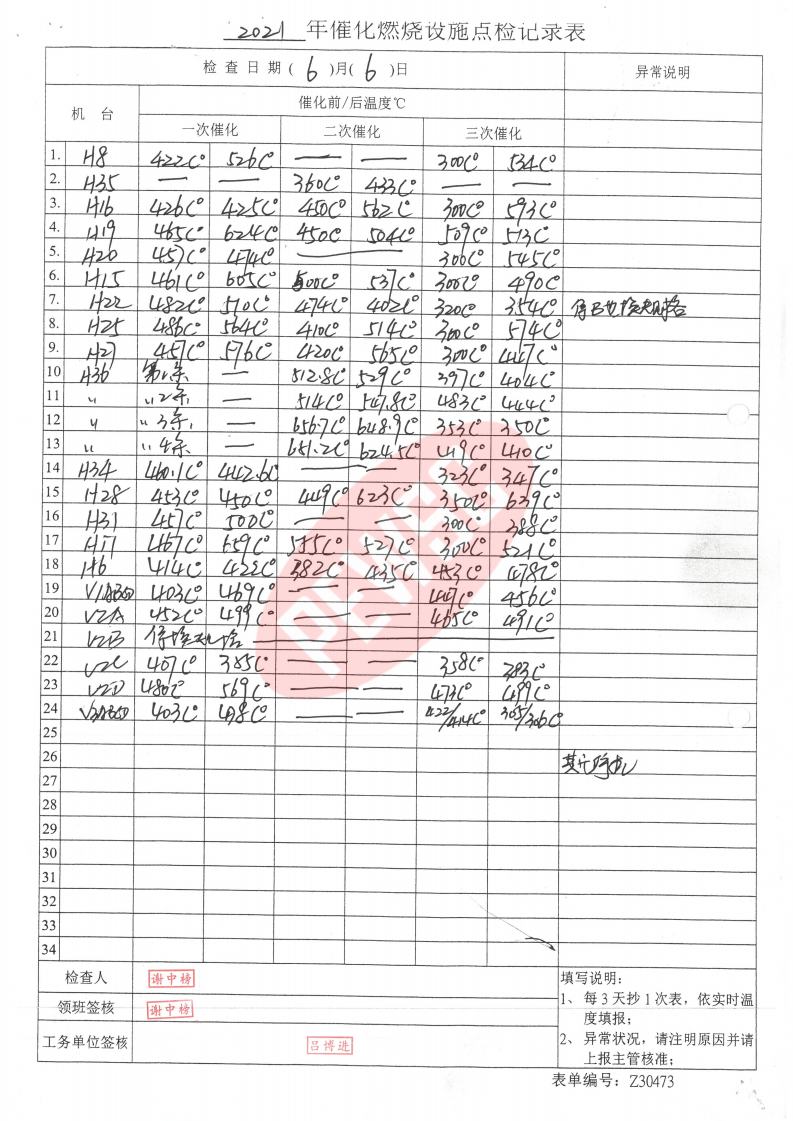 2021 年催化燃烧设施点检记录表
检查日期(6)月(6)日 异常说明
机台 催化前/后温度℃
一次催化 二次催化 三次催化
1. H8 422C° 526C° — — 300C° 534C°
2. H35 — — 360C° 433C° — —
3. H16 426C° 425C° 450C° 562C° 300C° 593C°
4. H19 465C° 624C° 450C° 504C° 509C° 513C°
5. H20 457C° 474C° — 300C° 545C°
6. H15 461C° 605C° 500C° 537C° 300C° 490C°
7. H22 482C° 510C° 474C° 402C° 320C° 354C°
8. H25 486C° 564C° 410C° 514C° 300C° 574C°
9. H27 457C° 576C° 420C° 565C° 300C° 447C°
10 H36 — 512.8C° 529C° 397C° 404C°
11 〃 〃2条 — 514C° 547.8C° 483C° 444C°
12 〃 〃3条 — 656.7C° 648.9C° 353C° 350C°
13 〃 〃4条 — 651.2C° 624.5C° 419C° 410C°
14 H34 460.1C° 442.6C° — 323C° 347C°
15 H28 453C° 450C° 449C° 623C° 350C° 639C°
16 H31 457C° 500C° — — 300C° 388C°
17 H17 467C° 659C° 555C° 527C° 300C° 521C°
18 H6 414C° 422C° 382C° 435C° 453C° 478C°
19 403C° 469C° — — 447C° 456C°
20 V2A 452C° 499C° — — 465C° 491C°
21 V2B
22 V2C 407C° 385C° — — 358C° 383C°
23 V2D 480C° 569C° — — 473C° 499C°
24 403C° 498C° — — 422/414C° 305/306C°
25
26
27
28
29
30
31
32
33
34
PCWSC
检查人 谢中榜
领班签核 谢中榜
工务单位签核 吕博进
填写说明：
1、每3天抄1次表，依实时温
度填报；
2、异常状况，请注明原因并请
上报主管核准；
表单编号：Z30473